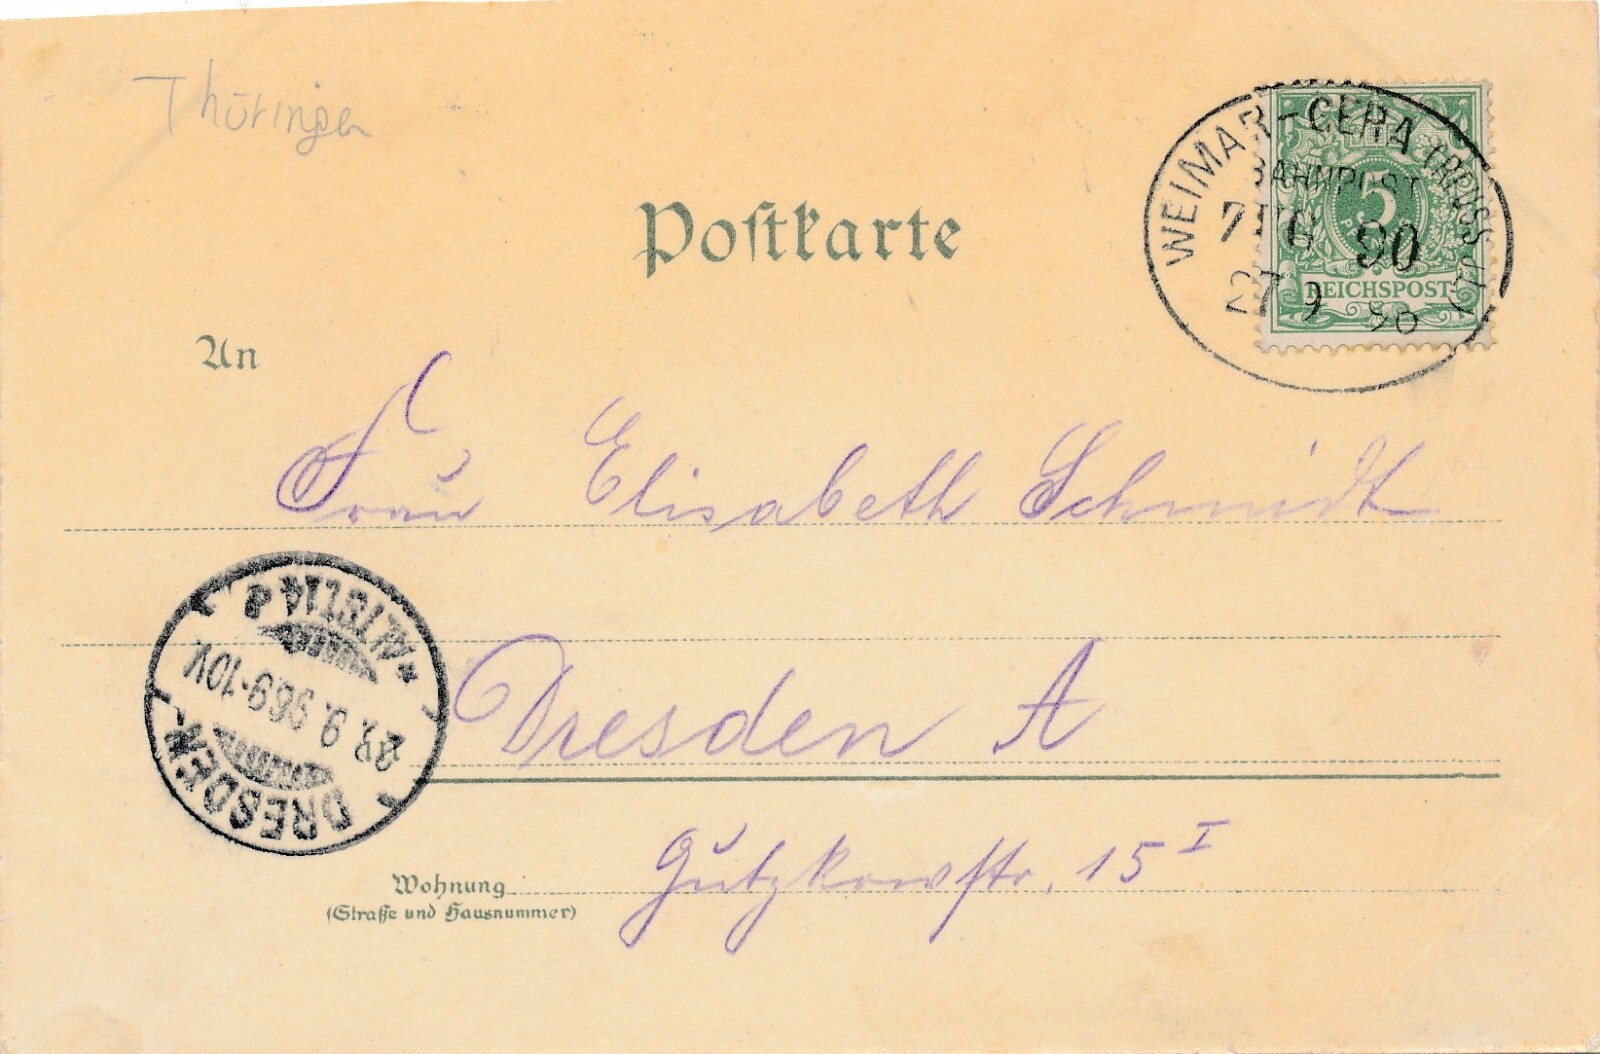 Thüringen
Postkarte
WEIMAR-GERA (REUSS J.L.)
BAHNPOST
ZUG 90
27 9 96
5
REICHSPOST
An
Frau Elisabeth Schmidt
Dresden A
Gutzkowstr. 15 I
Wohnung
(Straße und Hausnummer)
DRESDEN-
ALTST. 14
29. 9. 96. 9-10V